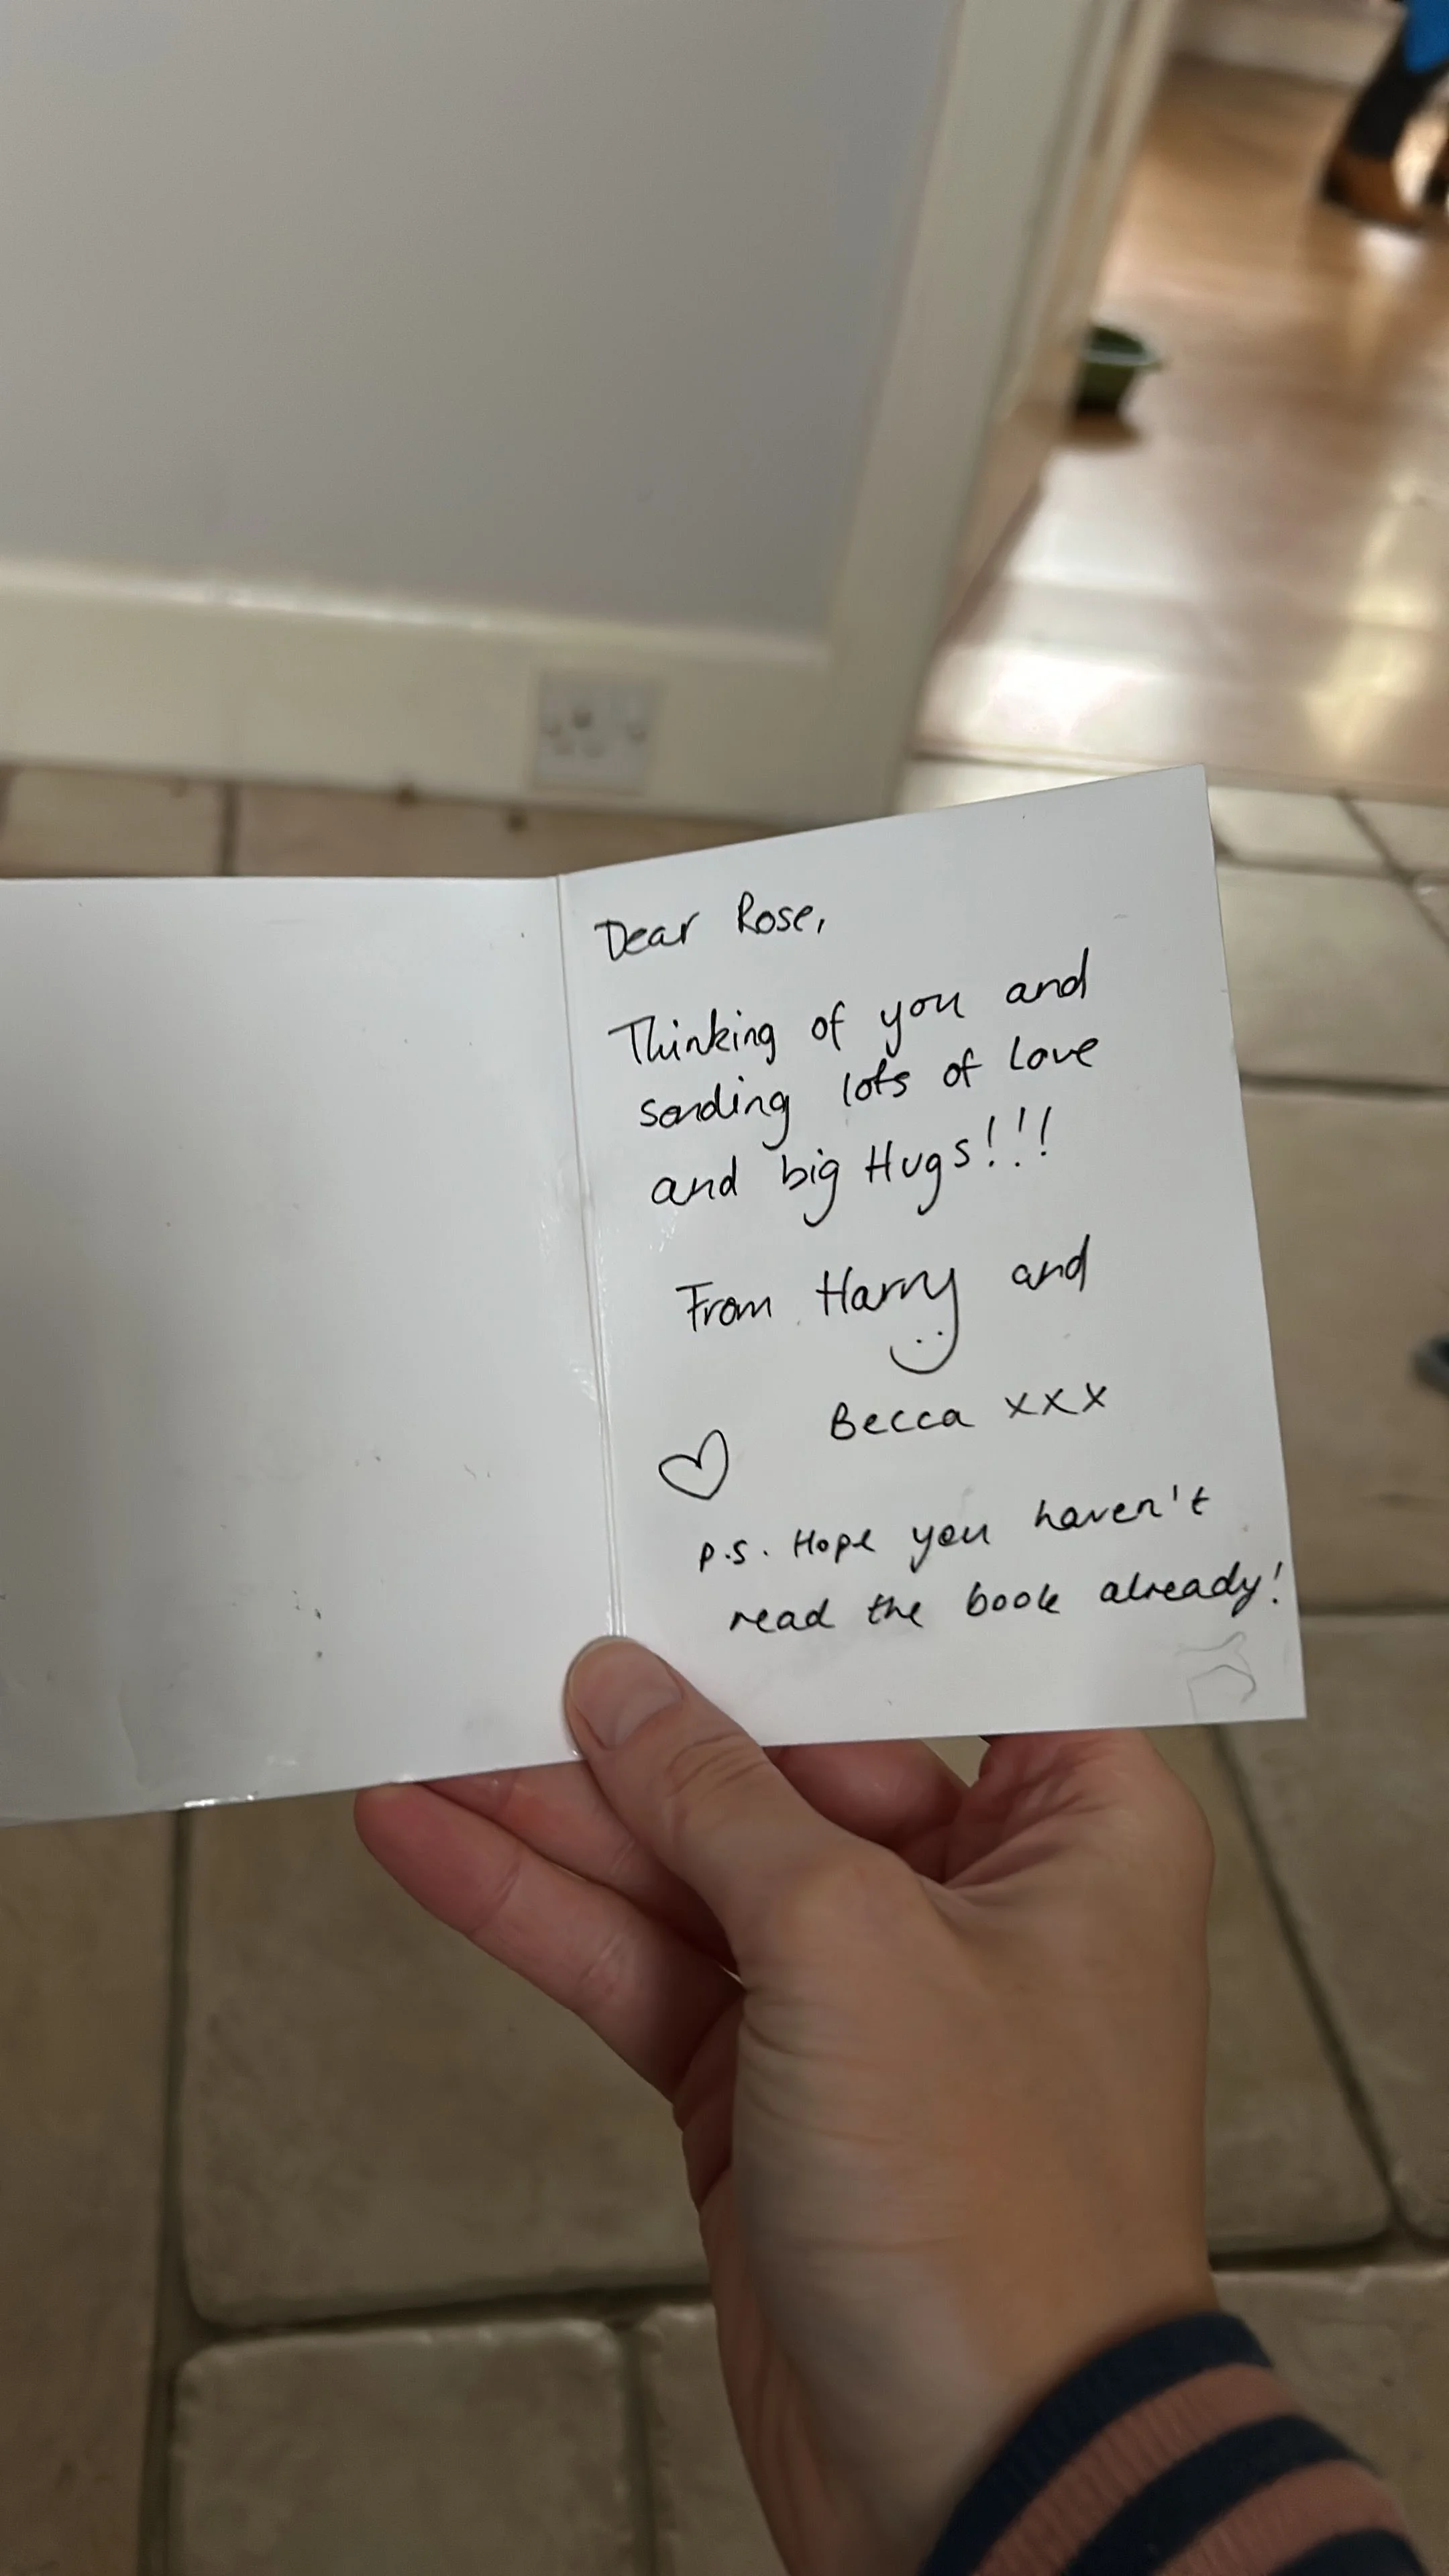 Dear Rose,
Thinking of you and
sending lots of love
and big Hugs!!!
From Harry and
Becca xxx
P.S. Hope you haven't
read the book already!